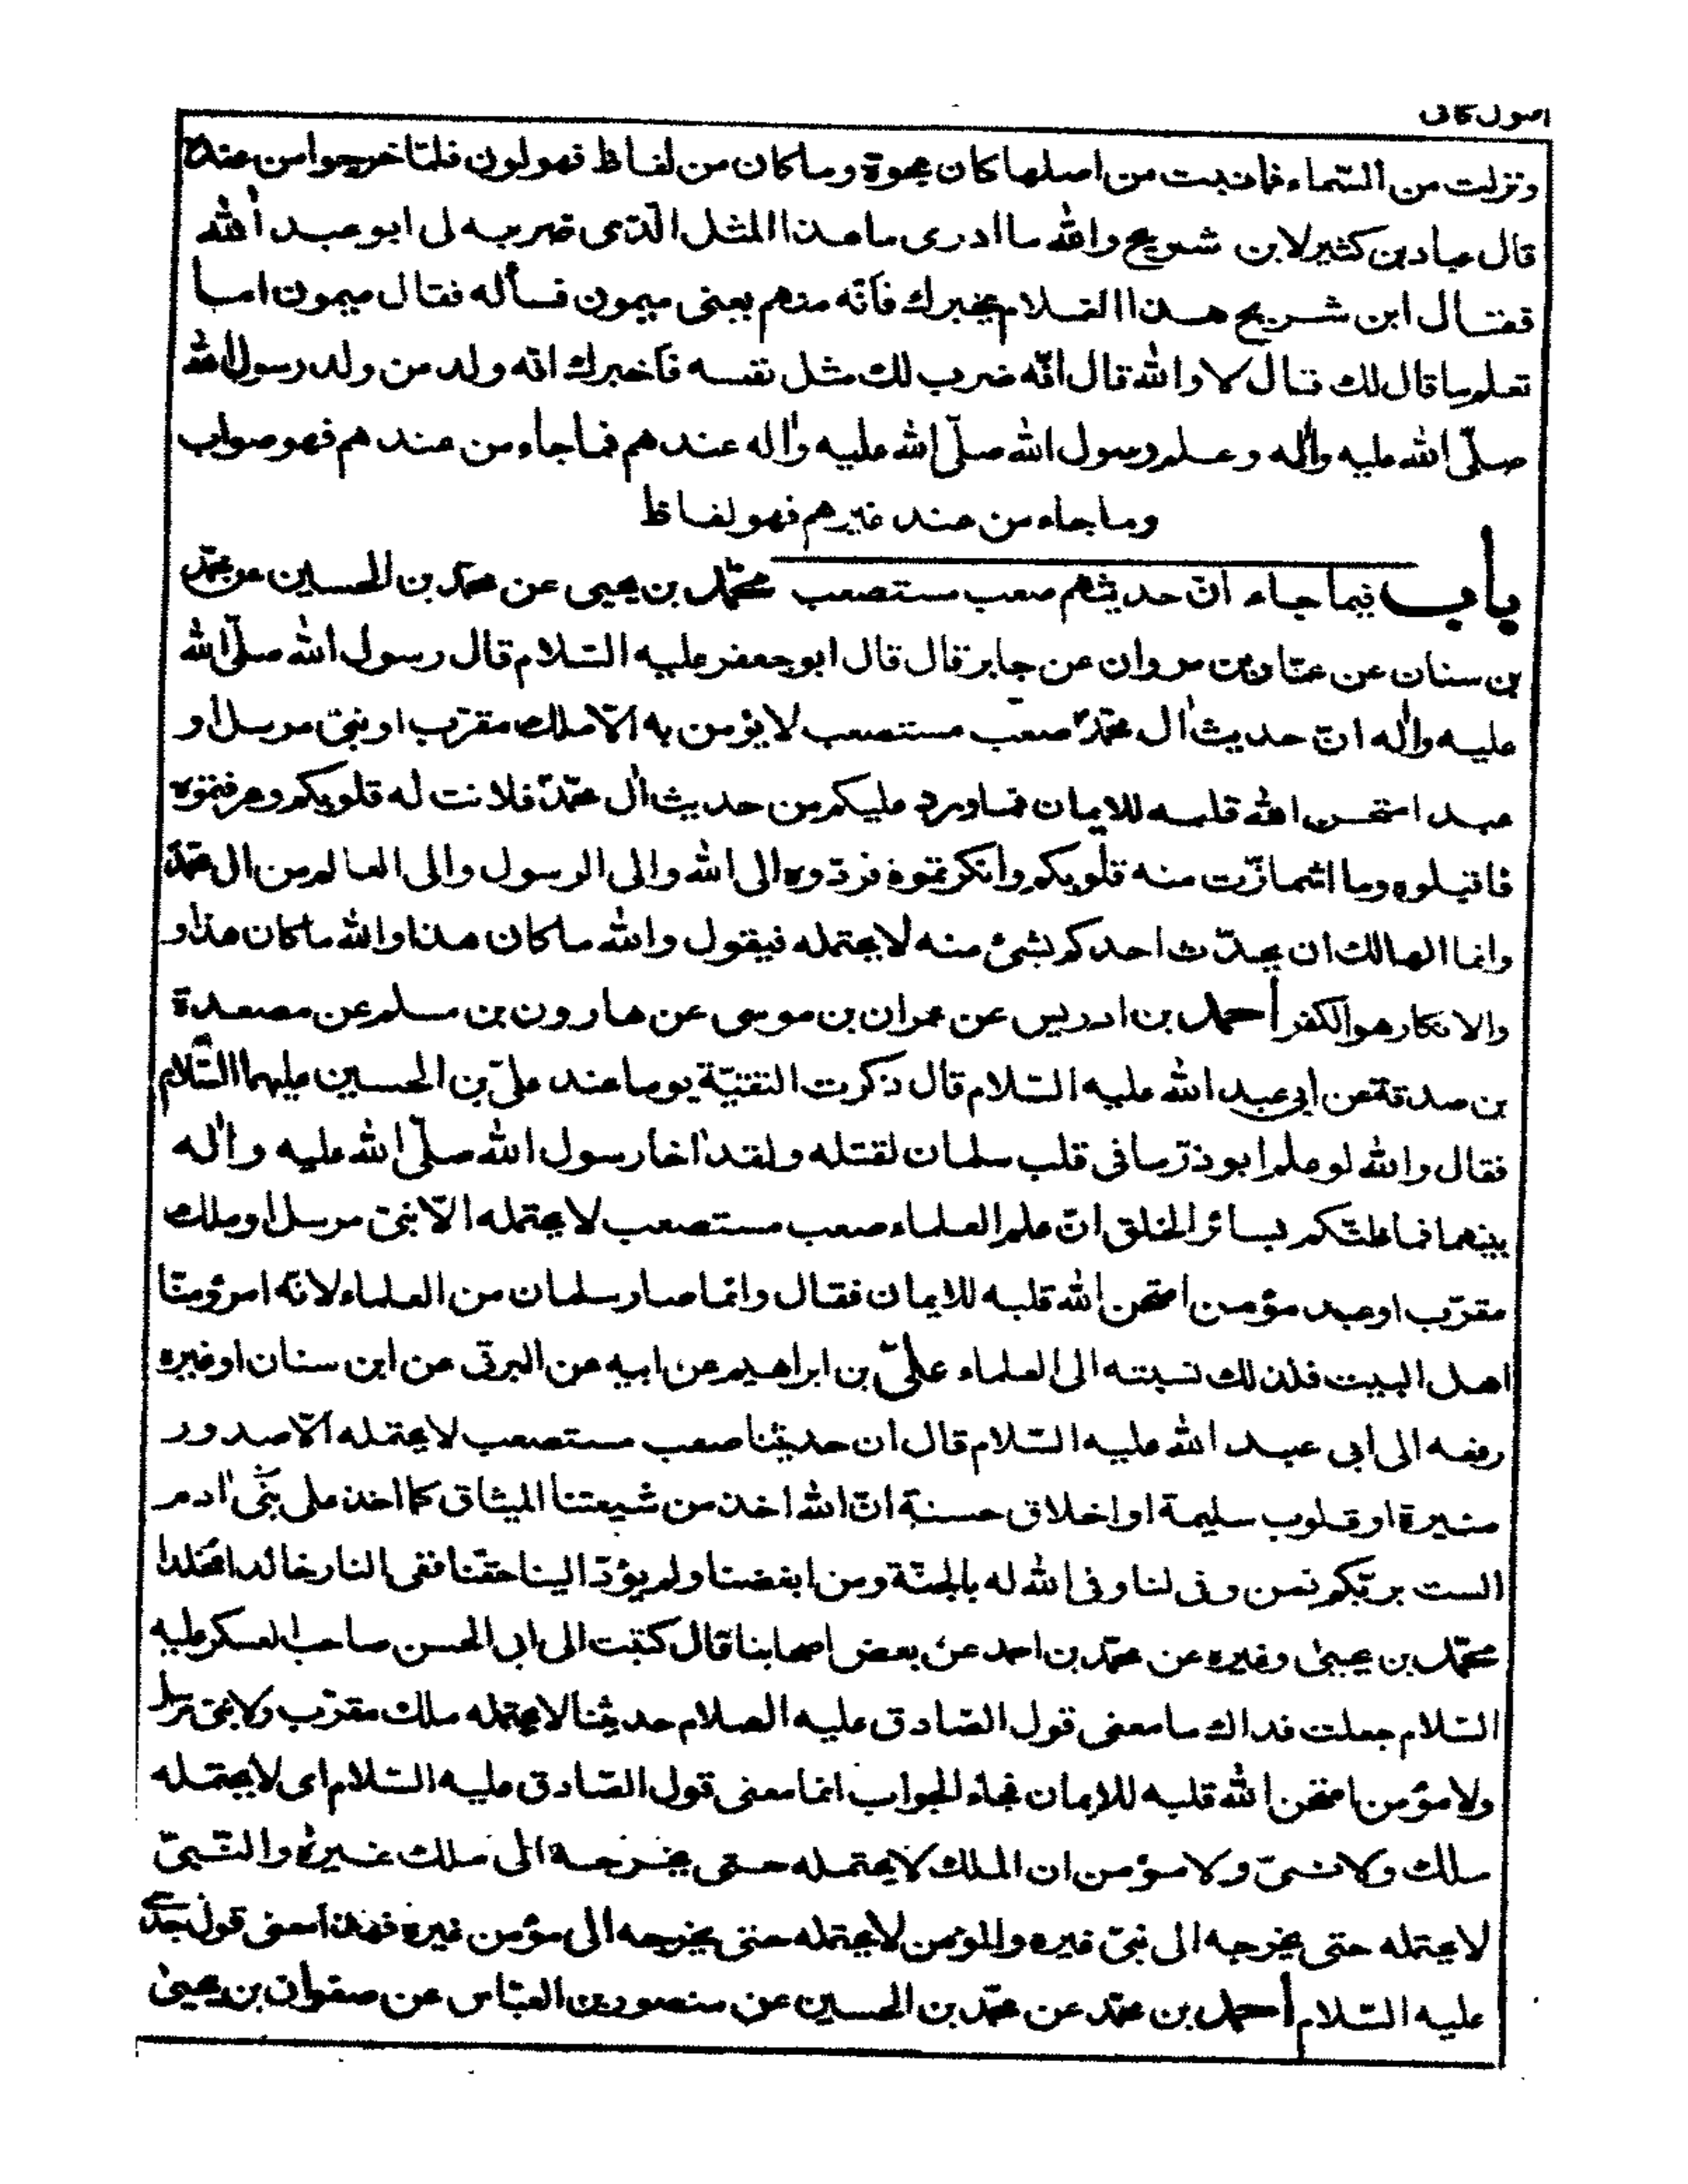 اصول كافى
ونزلت من السّماء فما نبت من اصلها كان عجوة وما كان من لفاظ فهو لون فلمّا خرجوا من عنده
قال عباد بن كثير لابن شريح والله ما ادرى ما هذا المثل الّذى ضربه لى ابو عبد الله
فقال ابن شريح هذا الغلام يخبرك فانّه منهم يعنى ميمون فسأله فقال ميمون اما
تعلم ما قال لك قال لا والله قال انّه ضرب لك مثل نفسه فاخبرك انّه ولد من ولد رسول الله
صلّى الله عليه واٰله وعلم رسول الله صلّى الله عليه واٰله عندهم فما جاء من عندهم فهو صواب
وما جاء من عند غيرهم فهو لفاظ
باب فيما جاء انّ حديثهم صعب مستصعب محمّد بن يحيى عن محمّد بن الحسين عن محمّد
بن سنان عن عمّار بن مروان عن جابر قال قال ابو جعفر عليه السّلام قال رسول الله صلّى الله
عليه واٰله انّ حديث اٰل محمّد صعب مستصعب لا يؤمن به الّا ملك مقرّب او نبىّ مرسل او
عبد امتحن الله قلبه للايمان فما ورد عليكم من حديث اٰل محمّد فلانت له قلوبكم وعرفتموه
فاقبلوه وما اشمأزّت منه قلوبكم وانكرتموه فردّوه الى الله والى الرسول والى العالم من اٰل محمّد
وانما الهالك ان يحدّث احدكم بشئ منه لا يحتمله فيقول والله ما كان هذا والله ما كان هذا و
والانكار هو الكفر أحمد بن ادريس عن عمران بن موسى عن هارون بن مسلم عن مصعدة
بن صدقة عن ابى عبد الله عليه السّلام قال ذكرت التقيّة يوما عند علىّ بن الحسين عليهما السّلام
فقال والله لو علم ابو ذرّ ما فى قلب سلمان لقتله ولقد اٰخا رسول الله صلّى الله عليه واٰله
بينهما فما ظنّكم بسائر الخلق انّ علم العلماء صعب مستصعب لا يحتمله الّا نبىّ مرسل او ملك
مقرّب او عبد مؤمن امتحن الله قلبه للايمان فقال وانّما صار سلمان من العلماء لانّه امرؤ منّا
اهل البيت فلذلك نسبته الى العلماء علىّ بن ابراهيم عن ابيه عن البرقى عن ابن سنان او غيره
رفعه الى ابى عبد الله عليه السّلام قال ان حديثنا صعب مستصعب لا يحتمله الّا صدور
منيرة او قلوب سليمة او اخلاق حسنة انّ الله اخذ من شيعتنا الميثاق كما اخذ على بنى اٰدم
الست بربّكم فمن وفى لنا وفى الله له بالجنّة ومن ابغضنا ولم يؤدّ الينا حقّنا ففى النار خالدا مخلدا
محمّد بن يحيىٰ وغيره عن محمّد بن احمد عن بعض اصحابنا قال كتبت الى ابى الحسن صاحب العسكر عليه
السّلام جعلت فداك ما معنى قول الصّادق عليه السلام حديثنا لا يحتمله ملك مقرّب ولا نبىّ مرسل
ولا مؤمن امتحن الله قلبه للايمان فجاء الجواب انما معنى قول الصّادق عليه السّلام اى لا يحتمله
ملك ولا نبىّ ولا مؤمن ان الملك لا يحتمله حتى يخرجه الى ملك غيره والنّبىّ
لا يحتمله حتى يخرجه الى نبىّ غيره والمؤمن لا يحتمله حتى يخرجه الى مؤمن غيره فهذا معنى قول جدّى
عليه السّلام أحمد بن محمّد عن محمّد بن الحسين عن منصور بن العبّاس عن صفوان بن يحيىٰ